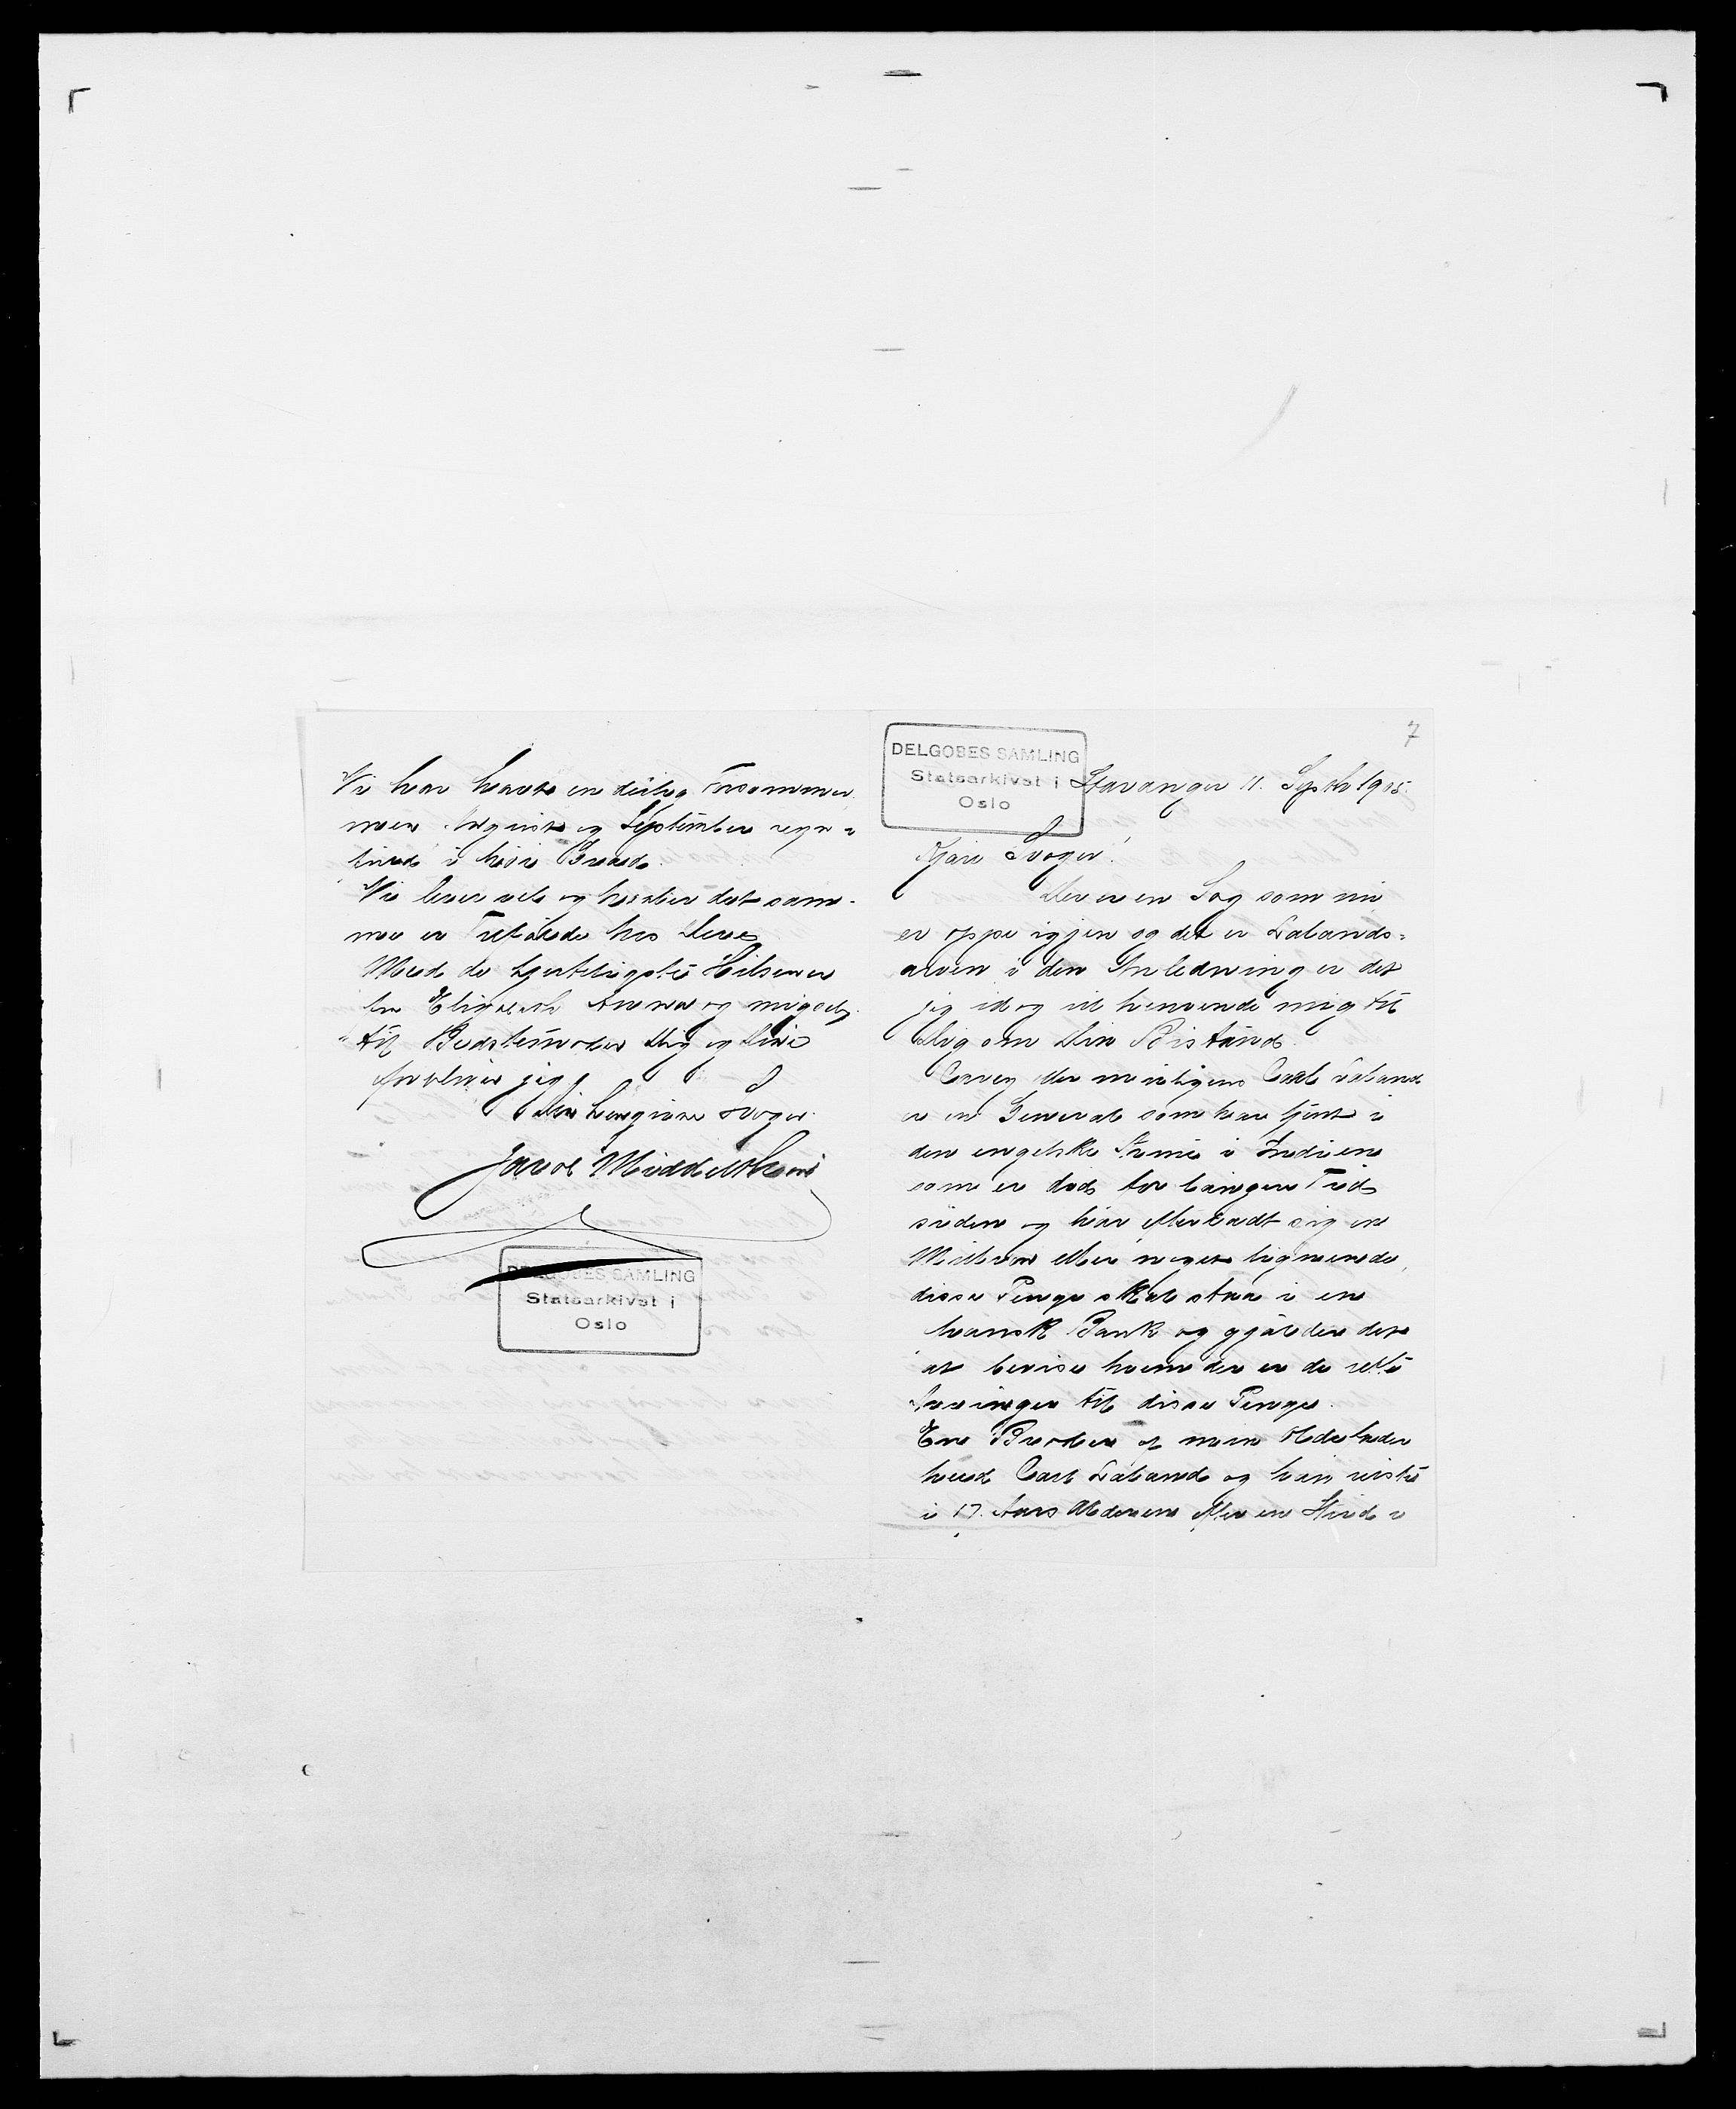 Vi har havt en deilig Forsommer
men August og September regn-
fuld i høie Grad.
Vi lever vel og haaber det sam-
me er Tilfælde hos Dere
Med de hjerteligste Hilsener
fra Elisabeth Anna og mig selv
til Bedstemoder Dig og Dine
forbliver jeg
Din hengivne Svoger
Jacob Middelthon
DELGOBES SAMLING
Statsarkivet i
Oslo
7
DELGOBES SAMLING
Statsarkivet i
Oslo
Stavanger 11. Septbr 1905.
Kjære Svoger!
Der er en Sag som nu
er oppe igjen og det er Labands-
arven i den Anledning er det
jeg idag vil henvende mig til
Dig om Din Bistand.
Arven efter nemligen Carl Laband
er en General som har tjent i
den engelske Arme i Indien
som er død for længere Tid
siden og har efterladt sig en
Million eller noget lignende,
disse Penge skal staa i en
Bank og gjælder det
at bevise hvem der er de rette
Arvinger til disse Penge.
En Broder af min Oldefader
hed Carl Laband og han reiste
i 17. Aars Alderen efter en Strid i